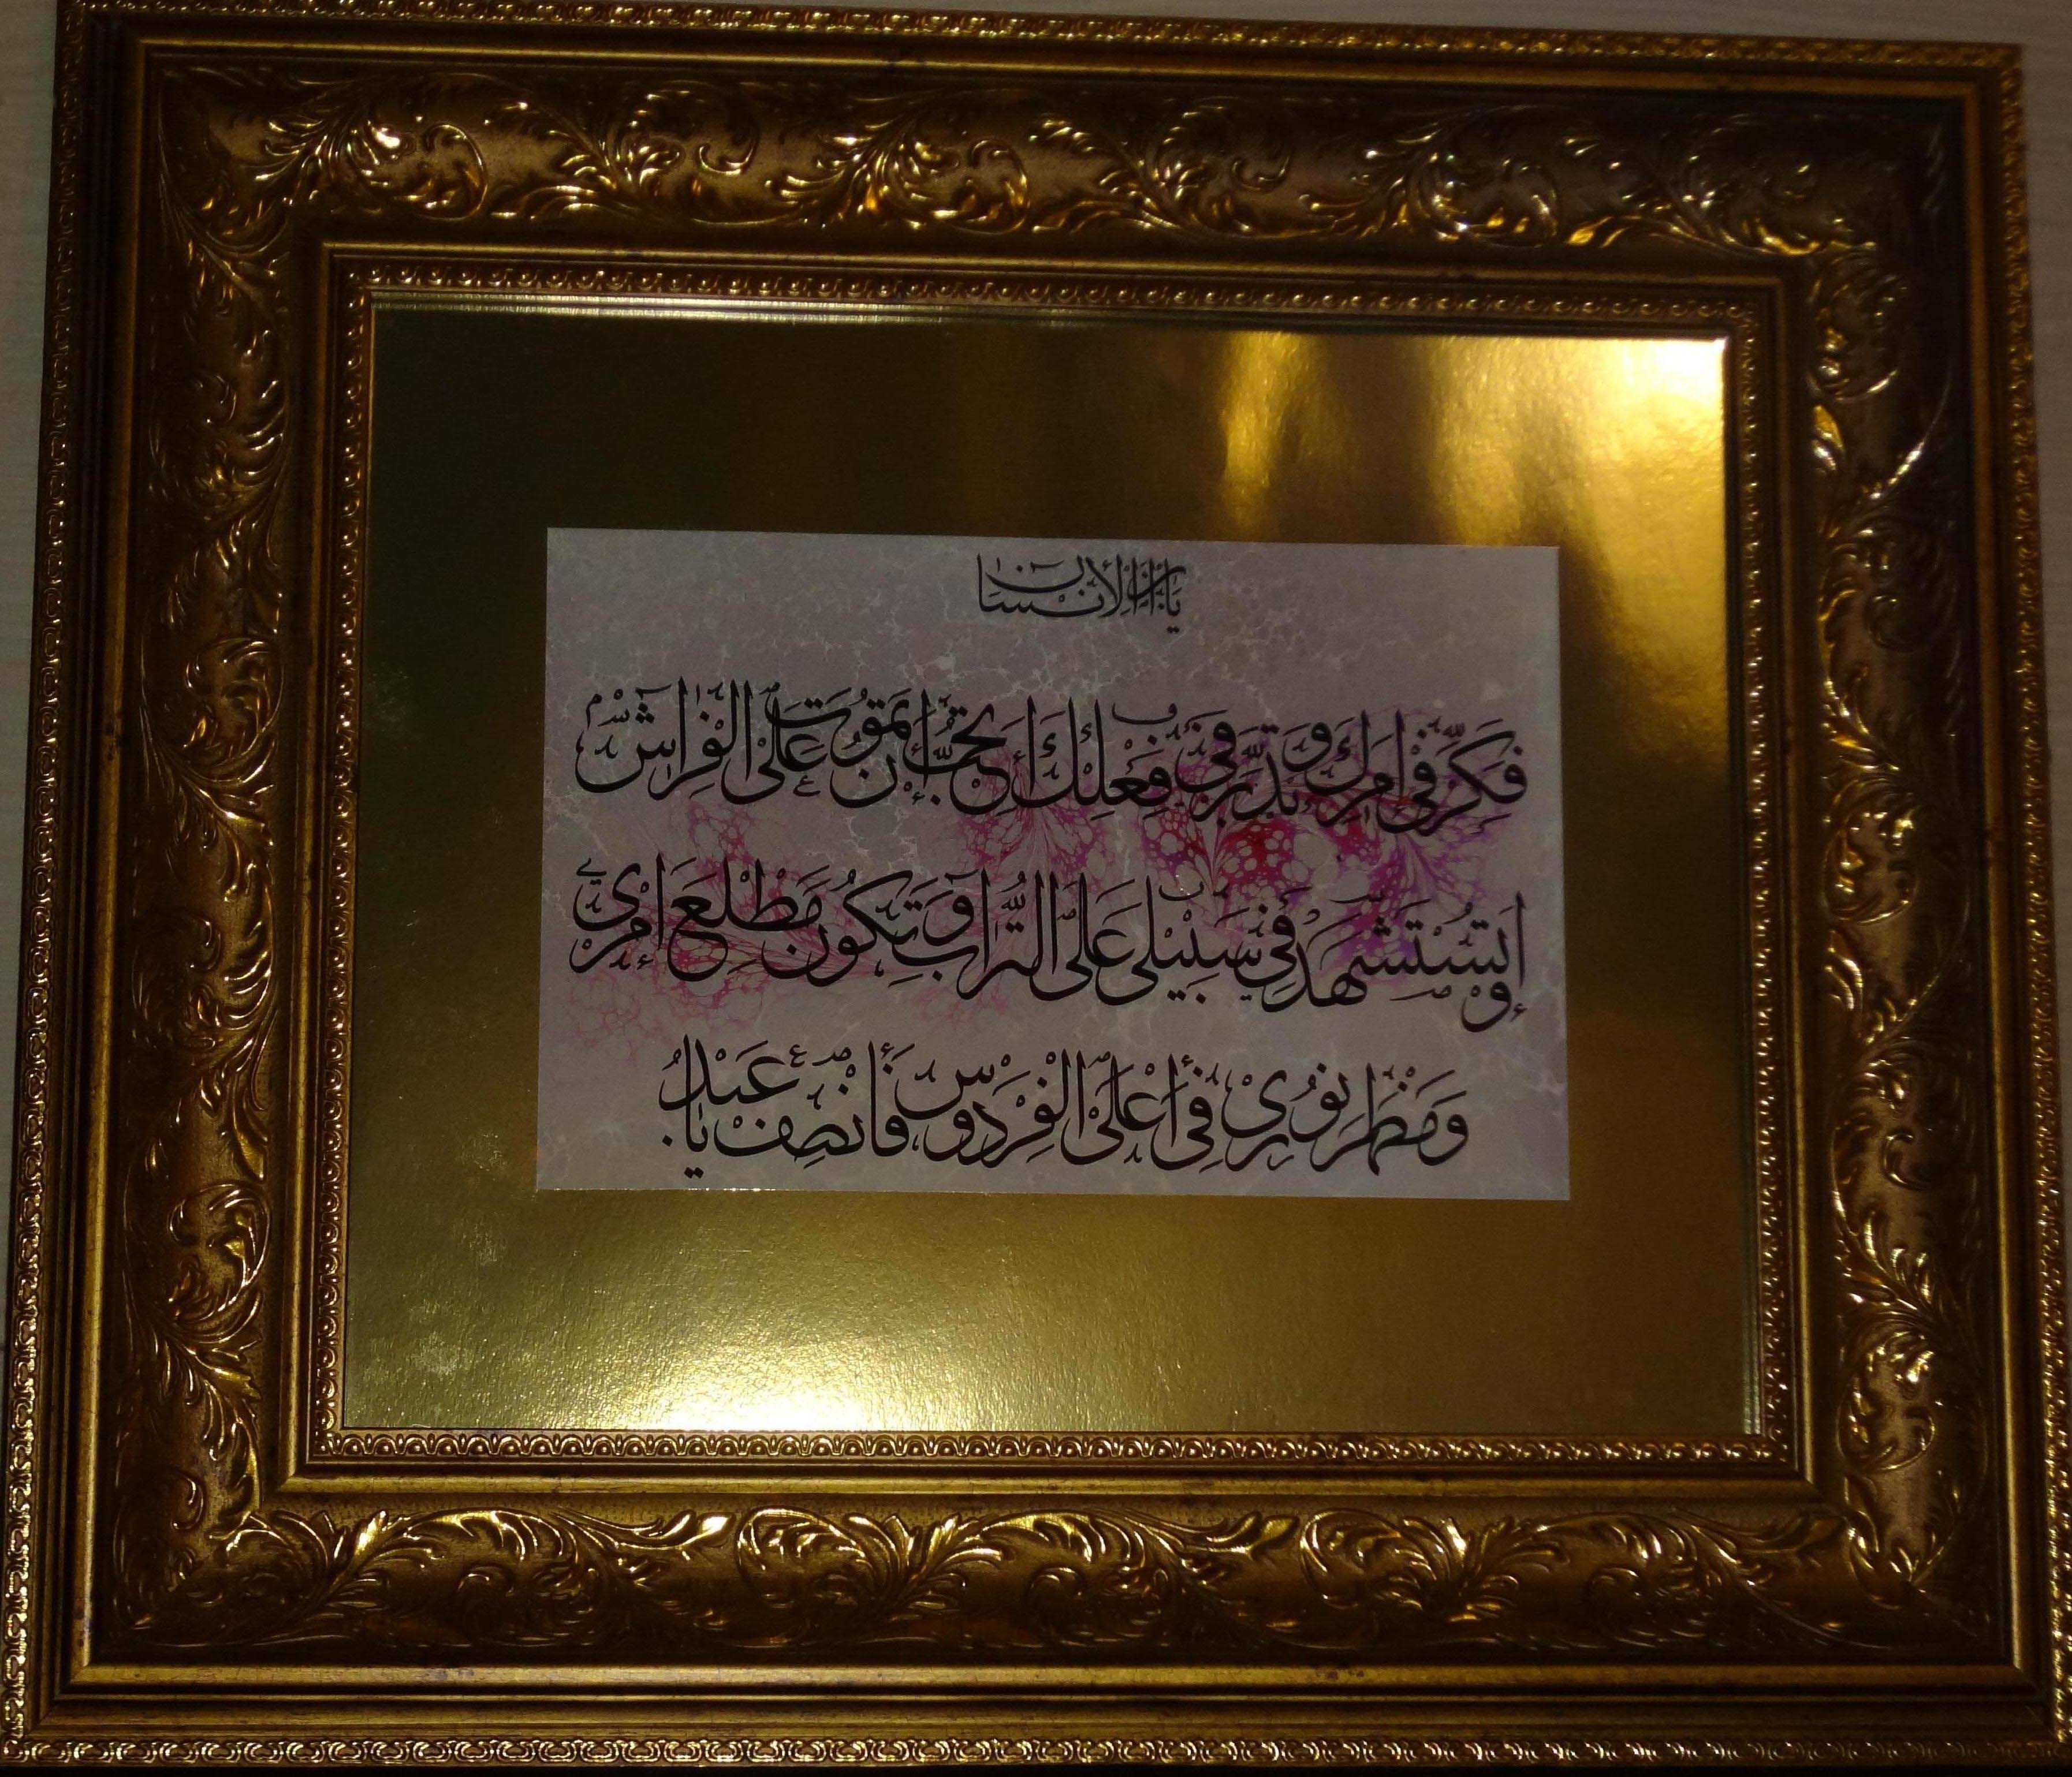 يا ابن الإنسان
فكر في أمرك وتدبر في فعلك أتحب أن تموت على الفراش
أو تستشهد في سبيلي على التراب وتكون مطلع أمري
ومظهر نوري في أعلى الفردوس فانصف يا عبد